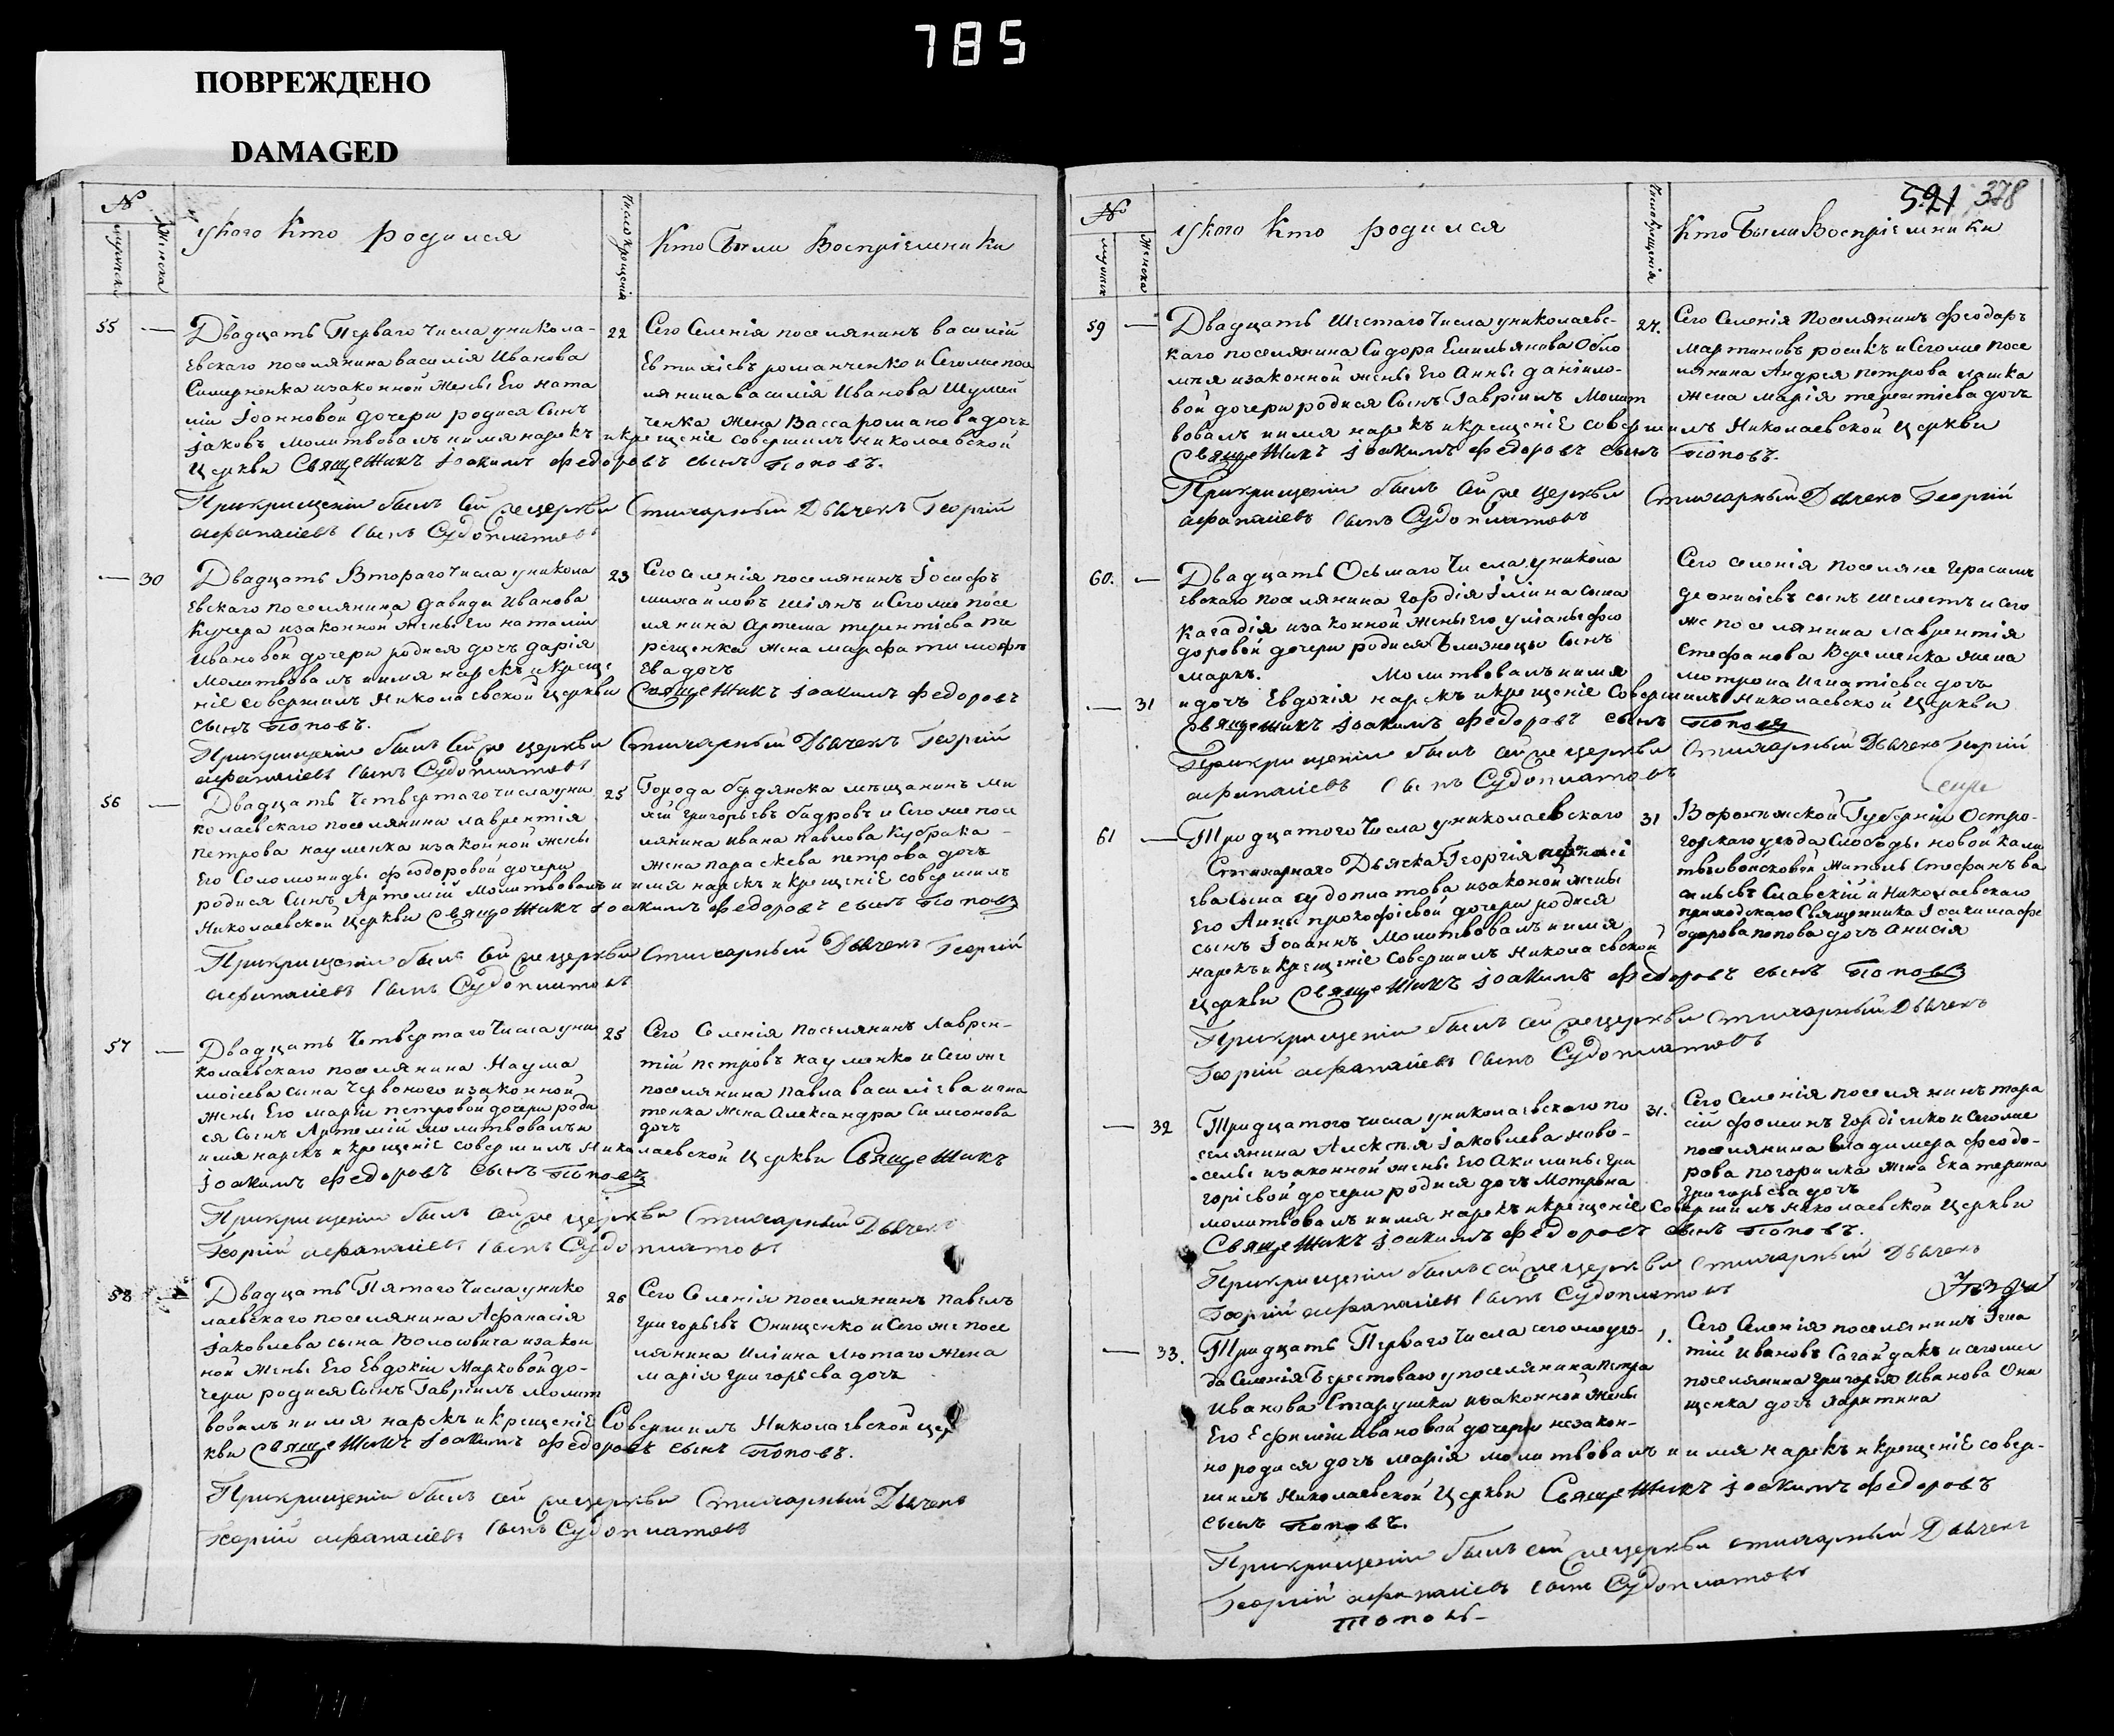 785
ПОВРЕЖДЕНО
DAMAGED
№
мужеска
Женска
у кого кто родился
Число крещенія
Кто были Воспріемники
55 — Двадцать Перваго числа уникола-
евскаго поселянина василія Иванова
изаконной жены Его ната
ліи Іоанновой дочери родися Сынъ
Іаковъ молитвовалъ иимя нарекъ икрещеніе совершилъ николаевской
Церкви Священникъ Іоакимъ Федоровъ сынъ Поповъ.
22 Сего Селенія поселянинъ василій
Евтихіевъ романченко и Сегоже посе
лянина василія Иванова Шулей
ченка жена Васса романова дочь
Прикрищеніи былъ сей же церкви Стихарный Дьячекъ Георгій
афанасіевъ сынъ Судоплатовъ
— 30 Двадцать Втораго Числа уникола
Евскаго поселянина давида Иванова
Кучера изаконной жены Его наталіи
Ивановой дочери родися дочь дарія
молитвовалъ иимя нарекъ икреще
ніе совершилъ Николаевской Церкви Священникъ Іоакимъ Федоровъ
сынъ Поповъ.
23 Сего селенія поселянинъ Іосифъ
михайловъ шіянъ и Сегоже посе
лянина Артема терентіева те
рещенка жена марфа тимофе
ева дочь
Прикрищеніи былъ Сей же церкви Стихарный Дьячекъ Георгій
афанасіевъ сынъ Судоплатовъ
56 — Двадцать Четвертаго числа уни
колаевскаго поселянина лаврентія
Петрова науменка изаконной жены
Его Соломониды феодоровой дочери
родися Сынъ Артемій Молитвовалъ и имя нарекъ и крещеніе совершилъ
Николаевской Церкви Священникъ Іоакимъ Федоровъ сынъ Поповъ
25 Города бердянска мѣщанинъ ми
хей григорьевъ бидровъ и Сегоже посе
лянина ивана павлова Кубрака
жена параскева петрова дочь
Прикрищеніи былъ Сей же церкви Стихарный Дьячекъ Георгій
афанасіевъ сынъ Судоплатовъ
57 — Двадцать Четвертаго Числа уни
колаевскаго поселянина Наума
моісева сына Червоного изаконной
жены Его маріи петровой дочери роди
ся сынъ Артемій молитвовалъ и
имя нарекъ и крещеніе совершилъ Николаевской Церкви Священникъ
Іоакимъ Федоровъ Сынъ Поповъ
25 Сего Селенія поселянинъ Лаврен-
тій петровъ науменко и Сегоже
поселянина павла василіева
жена Александра Симеонова
дочь
Прикрищеніи былъ сей же церкви Стихарный Дьячекъ
Георгій афанасіевъ сынъ Судоплатовъ
58 — Двадцать Пятаго Числа унико
лаевскаго поселянина Афанасія
Іаковлева сына Волошвича изакон
ной жены Его Евдокіи Марковой до-
чери родися Сынъ Гавріилъ молит
вовалъ иимя нарекъ икрещеніе Совершилъ Николаевской цер
кви Священникъ Іоакимъ Федоровъ сынъ Поповъ.
26 Сего Селенія поселянинъ павелъ
григорьевъ Онищенко и Сегоже посе
лянина Иліина Лютаго жена
марія григорьева дочь
Прикрищеніи былъ сей же церкви Стихарный Дьячекъ
Георгій афанасіевъ сынъ Судоплатовъ
521 378
№
мужеск
Женска
у кого кто родился
Число крещенія
Кто были Воспріемники
59 — Двадцать Шестаго Числа униколаевс-
каго поселянина Сидора Емильянова Обло
мія изаконной жены Его Анны даніило-
вой дочери родися Сынъ Гавріилъ Молит
вовалъ иимя нарекъ икрещеніе совершилъ Николаевской Церкви
Священникъ Іоакимъ Федоровъ сынъ Поповъ.
27. Сего Селенія Поселянинъ Феодоръ
мартиновъ росикъ и Сегоже посе
лянина Андрея петрова
жена марія терентіева дочь
Прикрищеніи былъ Сей же церкви Стихарный Дьячекъ Георгій
афанасіевъ сынъ Судоплатовъ
60. — Двадцать Осьмаго Числа уникола
евскаго поселянина гордія Іліина сына
Кагадія изаконной жены Его уліаны фео
доровой дочери родися Близнецы сынъ
маркъ. Молитвовалъ иимя
— 31 и дочь Евдокія нарекъ икрещеніе Совершилъ Николаевской Церкви
Священникъ Іоакимъ Федоровъ сынъ Поповъ
Сего селенія поселяне Герасимъ
деонисіевъ сынъ шелестъ и сего
же поселянина лаврентія
стефанова Яременка жена
мотрона Игнатіева дочь
Прикрищеніи былъ сей же церкви Стихарный Дьячекъ Георгій
афанасіевъ сынъ Судоплатовъ
61 — Тридцатого Числа униколаевскаго
Стихарнаго Дьячка Георгія афанасі
ева Сына судоплатова изаконой жены
Его Анны прокофіевой дочери родися
сынъ Іоаннъ Молитвовалъ иимя
нарекъ и крещеніе Совершилъ Николаевской
Церкви Священникъ Іоакимъ Федоровъ сынъ Поповъ
31 Воронежской Губерніи Остро-
горскаго уезда Слободы новой
войсковой житель Стефанъ ва
сильевъ Славскій и Николаевскаго
приходскаго Священника Іоакима фе
одорова попова дочь Анисія
Прикрищеніи былъ сей же церкви Стихарный Дьячекъ
Георгій афанасіевъ сынъ Судоплатовъ
— 32 Тридцатого числа униколаевскаго по
селянина Алексея Іаковлева ново-
сельи изаконной жены Его Акилины гри
горіевой дочери родися дочь Мотрона
молитвовалъ иимя нарекъ икрещеніе Совершилъ Николаевской Церкви
Священникъ Іоакимъ Федоровъ сынъ Поповъ.
31. Сего Селенія поселянинъ тара
сій фоминъ гордіенко и Сегоже
поселянина владимера феодо-
рова погорилка жена Екатерина
григорьева дочь
Прикрищеніи былъ сей же церкви Стихарный Дьячекъ
Георгій афанасіевъ сынъ Судоплатовъ
— 33. Тридцать Перваго Числа сегоже уез-
да Селенія Берестоваго упоселянина петра
Иванова Старушки изаконной жены
Его Ефиміи ивановой дочери незакон-
но родися дочь марія молитвовалъ и имя нарекъ и крещеніе совер-
шилъ Николаевской Церкви Священникъ Іоакимъ Федоровъ
сынъ Поповъ.
1. Сего Селенія поселянинъ Игна
тій ивановъ Сагайдакъ и сегоже
поселянина григорія Иванова Они
щенка дочь харитина
Прикрищеніи былъ сей же церкви стихарный Дьячекъ
Георгій афанасіевъ сынъ Судоплатовъ
Поповъ